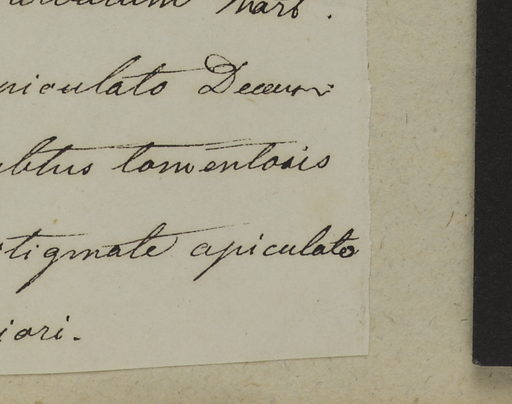 Mart.
niculato Decur
btus tomentosis
stigmate apiculato
iori.